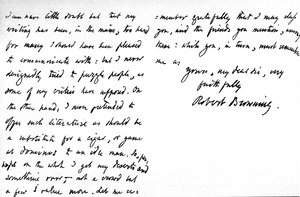 I can have little doubt but that my
writing has been, in the main, too hard
for many I should have been pleased
to communicate with: but I never
designedly tried to puzzle people, as
some of my critics have supposed. On
the other hand, I never pretended to
offer such literature as should be
a substitute for a cigar, or game
at dominoes to an idle man. So, per-
haps on the whole I get my deserts and
something over — not a crowd but
a few I value more. Let me re-
:member gratefully that I may class
you, and the friends you mention, among
these: while you, in turn, must remember
me as
Yours, my dear sir, very
faithfully
Robert Browning